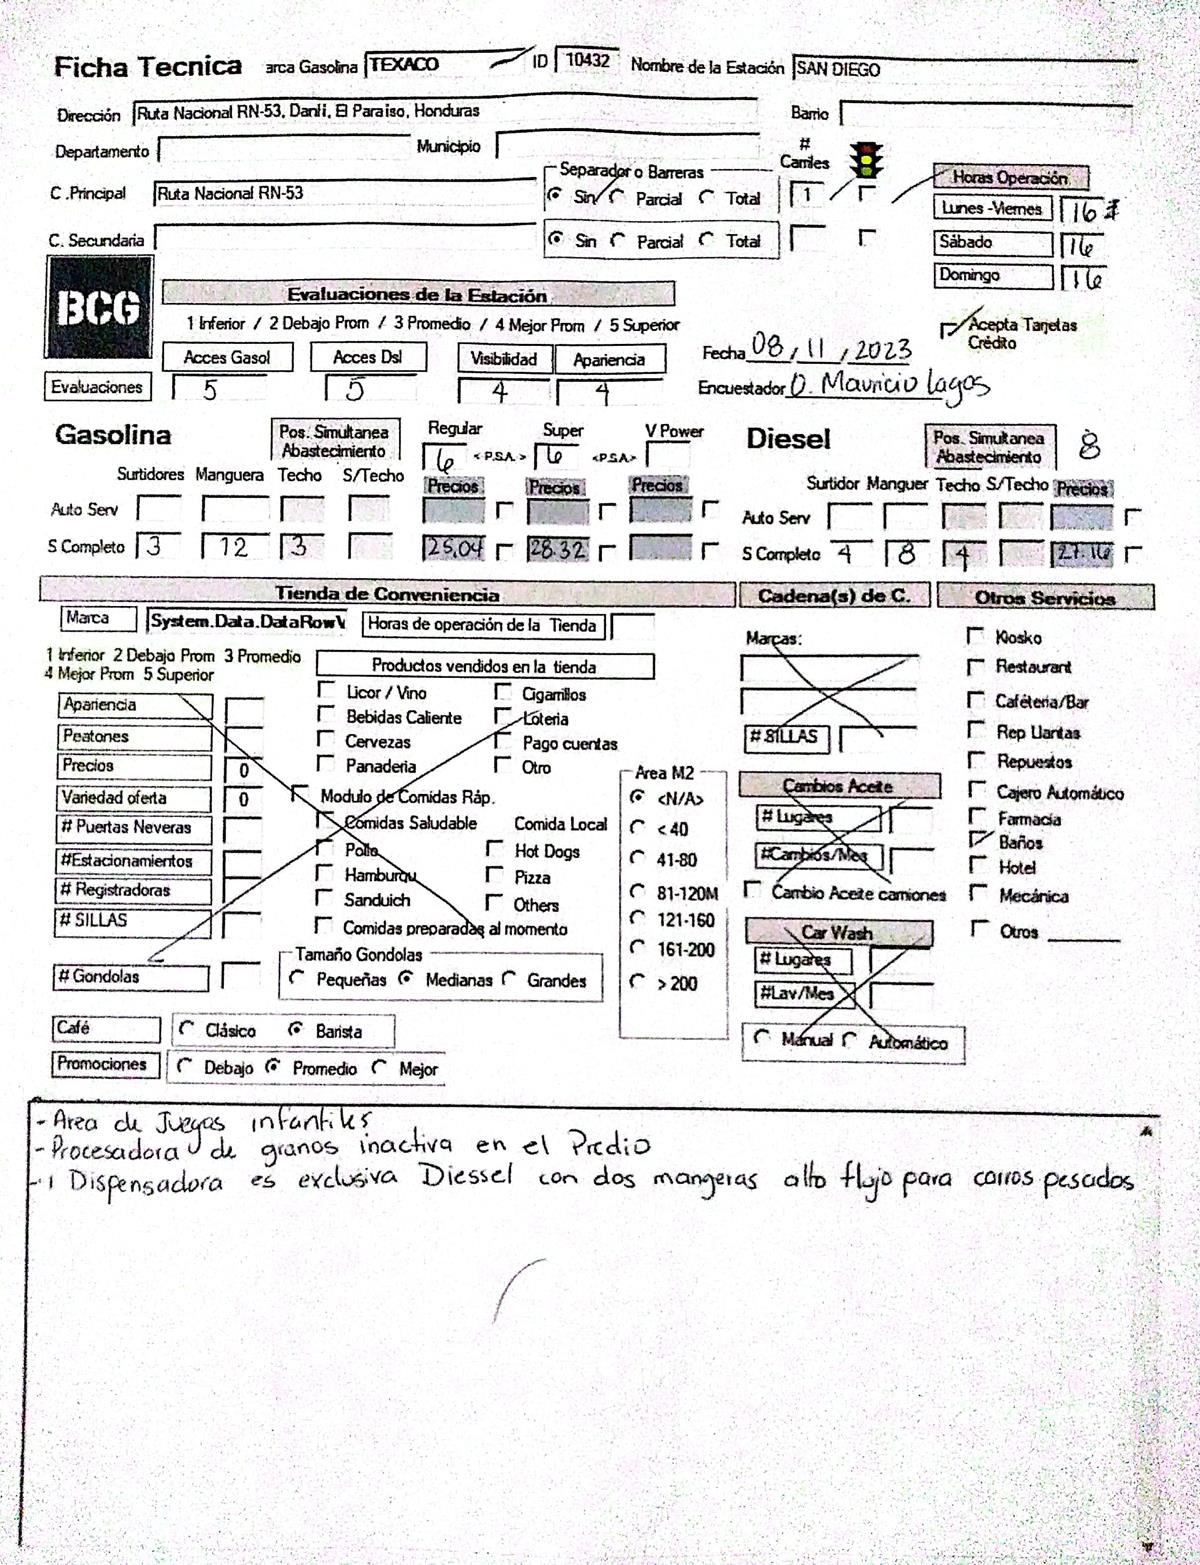 Ficha Tecnica arca Gasolina TEXACO ID 10432 Nombre de la Estación SAN DIEGO
Dirección Ruta Nacional RN-53, Danlí, El Paraíso, Honduras Barrio
Departamento Municipio # Carriles
C .Principal Ruta Nacional RN-53 Separador o Barreras Sin Parcial Total 1 Horas Operación
Lunes -Viernes 16
C. Secundaria Sin Parcial Total Sábado 16
Domingo 16
BCG Evaluaciones de la Estación
1 Inferior / 2 Debajo Prom / 3 Promedio / 4 Mejor Prom / 5 Superior Acepta Tarjetas Crédito
Acces Gasol Acces Dsl Visibilidad Apariencia Fecha 08, 11, 2023
Evaluaciones 5 5 4 4 Encuestador O. Mauricio Lagos
Gasolina Pos. Simultanea Abastecimiento Regular Super V Power Diesel Pos. Simultanea Abastecimiento 8
6 <P.S.A.> 6 <P.S.A>
Surtidores Manguera Techo S/Techo Precios Precios Precios Surtidor Manguer Techo S/Techo Precios
Auto Serv Auto Serv
S Completo 3 12 3 25.04 28.32 S Completo 4 8 4 27.16
Tienda de Conveniencia Cadena(s) de C. Otros Servicios
Marca System.Data.DataRowV Horas de operación de la Tienda
1 Inferior 2 Debajo Prom 3 Promedio
4 Mejor Prom 5 Superior
Productos vendidos en la tienda Marcas: Kiosko
Apariencia Licor / Vino Cigarrillos Restaurant
Peatones Bebidas Caliente Loteria Caféteria/Bar
Cervezas Pago cuentas # SILLAS Rep Llantas
Precios 0 Panaderia Otro Area M2 Repuestos
Variedad oferta 0 Modulo de Comidas Ráp. <N/A> Cambios Aceite Cajero Automático
# Puertas Neveras Comidas Saludable Comida Local < 40 # Lugares Farmacia
#Estacionamientos Pollo Hot Dogs 41-80 #Cambios/Mes Baños
# Registradoras Hamburqu Pizza 81-120M Cambio Aceite camiones Hotel
Sanduich Others Mecánica
# SILLAS Comidas preparadas al momento 121-160 Car Wash Otros
# Gondolas Tamaño Gondolas 161-200 # Lugares
Pequeñas Medianas Grandes > 200 #Lav/Mes
Café Clásico Barista Manual Automático
Promociones Debajo Promedio Mejor
- Area de Juegas infantiles
- Procesadora de granos inactiva en el Predio
- 1 Dispensadora es exclusiva Diessel con dos mangeras alto flujo para carros pesados